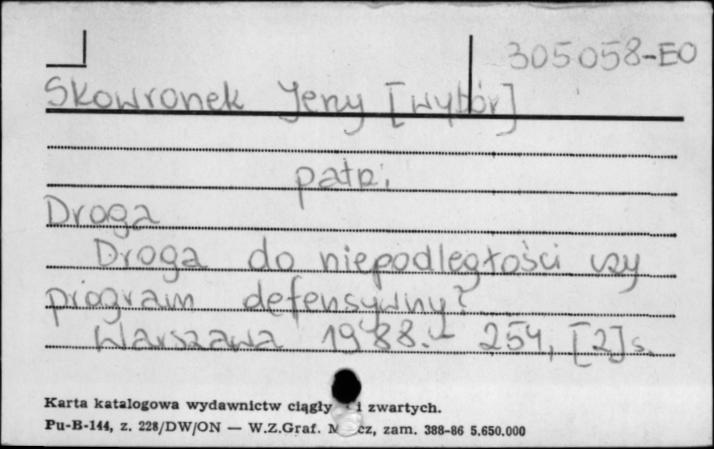 305058-EO
Skowronek Jerzy [wybór]
patrz:
Droga
Droga do niepodległości czy
program defensywny?
Warszawa 1988.- 254, [2] s.
Karta katalogowa wydawnictw ciągły i zwartych.
Pu-B-144, z. 228/DW/ON — W.Z.Graf. zam. 388-86 5.650.000